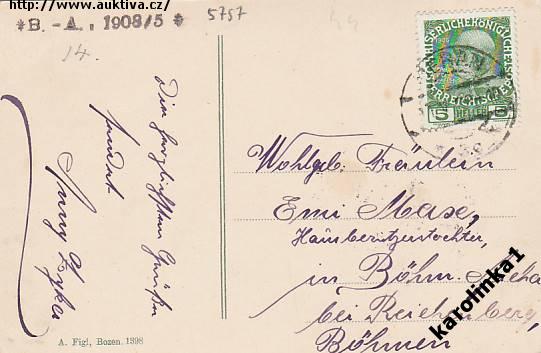 http://www.auktiva.cz/
*B. - A., 1908/5 *
5757
14.
Die herzlichsten Grüße
sendet
A. Figl, Bozen. 1398
KAISERLICHE KÖNIGLICHE
ÖSTERREICHISCHE
5 HELLER 5
Wohlgeb. Fräulein
Emi Maxe,
Hausbesitzerstochter,
in Böhm.
bei Reichenberg,
Böhmen
karolinka1